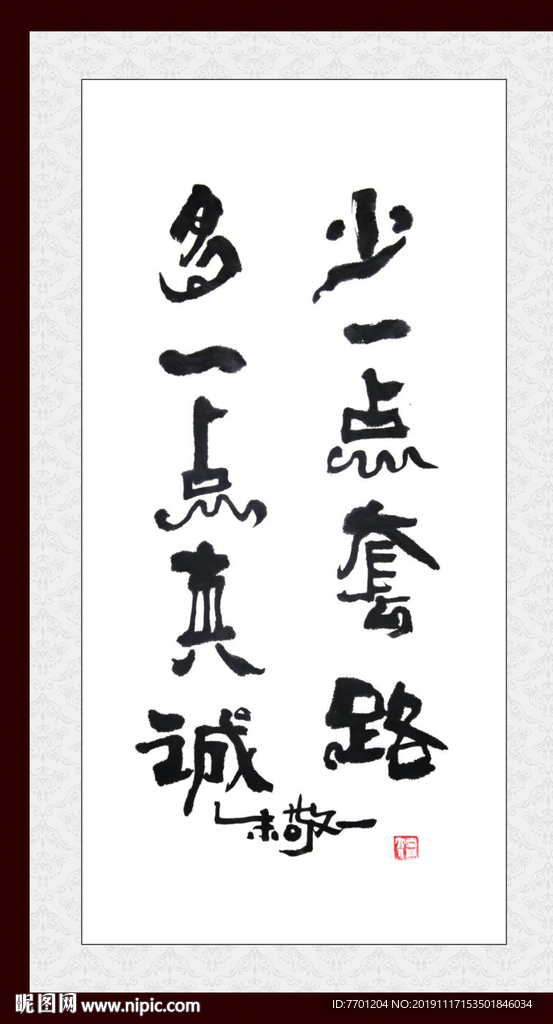 少一点套路
多一点真诚
朱敬一
昵图网 www.nipic.com
ID:7701204 NO:20191117153501846034